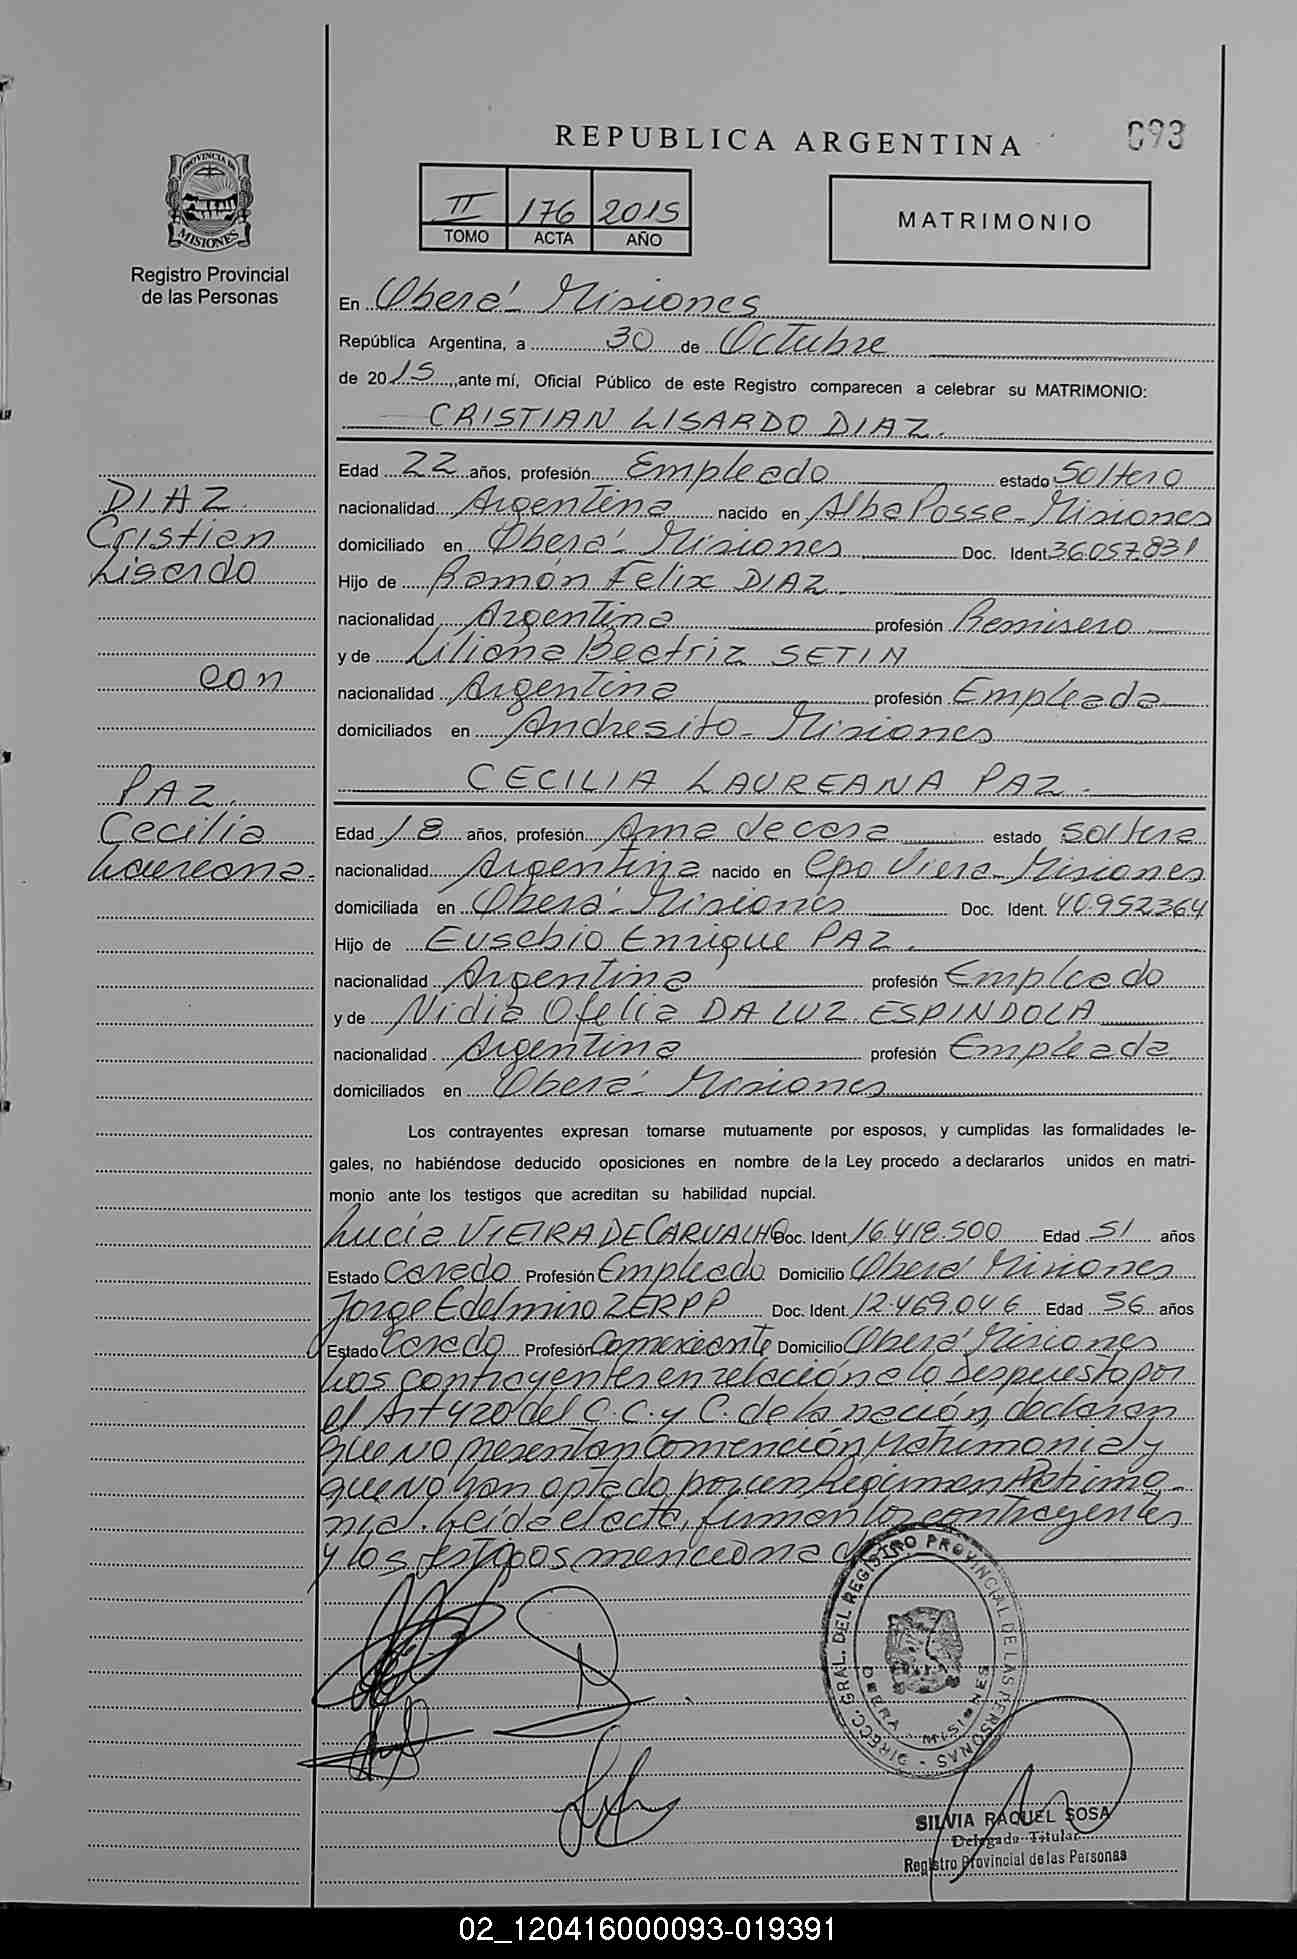 REPUBLICA ARGENTINA
093
PROVINCIA DE
MISIONES
Registro Provincial
de las Personas
II 176 2015
TOMO ACTA AÑO
MATRIMONIO
En Oberá - Misiones
República Argentina, a 30 de Octubre
de 2015, ante mí, Oficial Público de este Registro comparecen a celebrar su MATRIMONIO:
CRISTIAN LISARDO DIAZ.
Edad 22 años, profesión Empleado estado Soltero
nacionalidad Argentina nacido en Alba Posse - Misiones
domiciliado en Oberá - Misiones Doc. Ident. 36.057.831
Hijo de Ramón Felix DIAZ
nacionalidad Argentina profesión Remisero
y de Liliana Beatriz SETIN
nacionalidad Argentina profesión Empleada
domiciliados en Andresito - Misiones
CECILIA LAUREANA PAZ.
Edad 18 años, profesión Ama de casa estado soltera
nacionalidad Argentina nacido en Cpo Viera - Misiones
domiciliada en Oberá - Misiones Doc. Ident. 40.952364
Hijo de Eusebio Enrique PAZ.
nacionalidad Argentina profesión Empleado
y de Nidia Ofelia DA LUZ ESPINDOLA
nacionalidad Argentina profesión Empleada
domiciliados en Oberá - Misiones
DIAZ
Cristian
Lisardo
con
PAZ.
Cecilia
Laureana.
Los contrayentes expresan tomarse mutuamente por esposos, y cumplidas las formalidades le-
gales, no habiéndose deducido oposiciones en nombre de la Ley procedo a declararlos unidos en matri-
monio ante los testigos que acreditan su habilidad nupcial.
Lucía VIEIRA DE CARVALHO Doc. Ident. 16.418.500 Edad 51 años
Estado Casado Profesión Empleado Domicilio Oberá Misiones
Jorge Edelmiro ZERPP Doc. Ident. 12.469.046 Edad 56 años
Estado Casado Profesión Comerciante Domicilio Oberá Misiones
Los contrayentes en relación a lo despuesto por
el Art 420 del C.C. y C. de la nación, declaran
que NO presentan Convención Matrimonial y
que NO han optado por un Regimen Patrimo-
nial. Leida el acta, firman los contrayentes
y los testigos mencionados
DIRECC. GRAL. DEL REGISTRO PROVINCIAL DE LAS PERSONAS
OBERA - MISIONES
SILVIA RAQUEL SOSA
Delegada Titular
Registro Provincial de las Personas
02_120416000093-019391